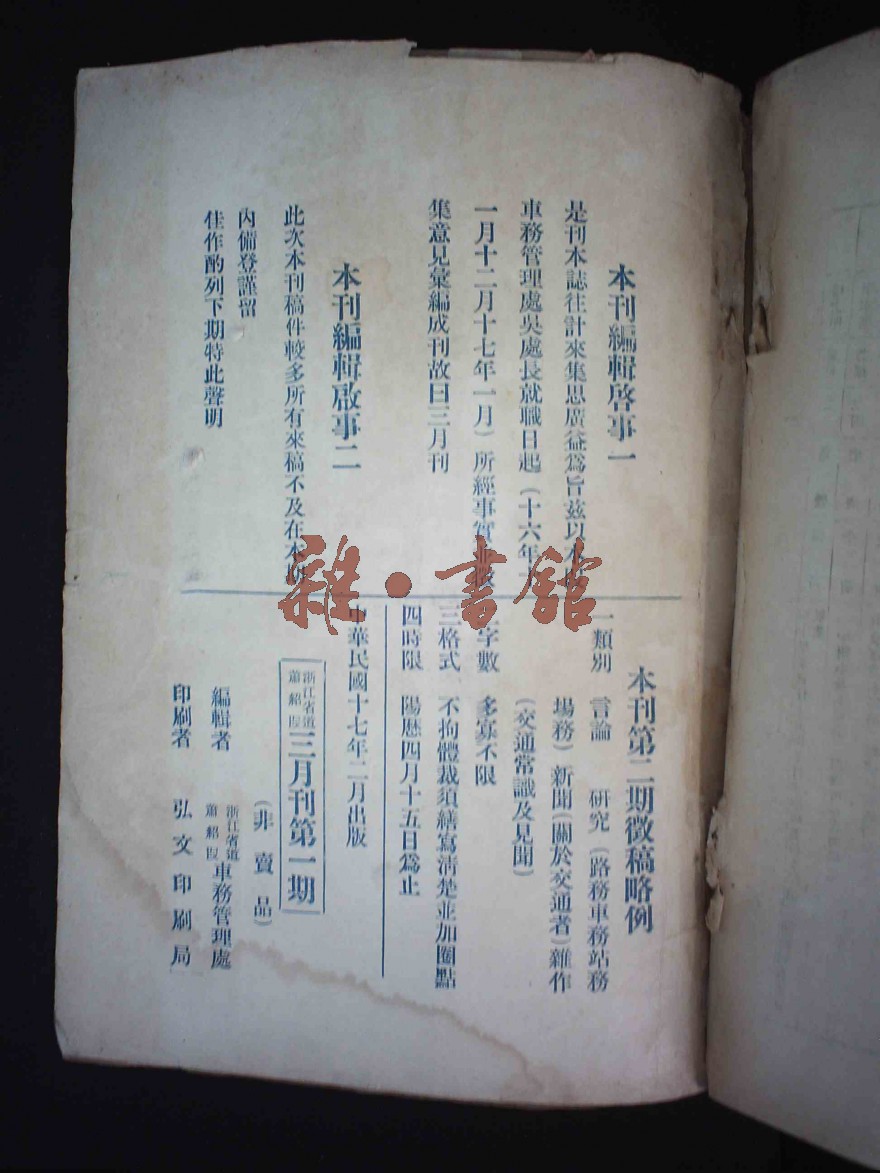 本刊編輯啓事一
是刊本誌往計來集思廣益爲旨玆以本
車務管理處吳處長就職日起（十六年
一月十二月十七年一月）所經事實並徵
集意見彙編成刊故曰三月刊
本刊編輯啟事二
此次本刊稿件較多所有來稿不及在本期
內備登謹留
佳作酌列下期特此聲明
本刊第二期徵稿略例
一類別　言論　研究（路務車務站務
場務）新聞（關於交通者）雜作
（交通常識及見聞）
二字數　多寡不限
三格式　不拘體裁須繕寫清楚並加圈點
四時限　陽歷四月十五日爲止
中華民國十七年二月出版
浙江省道蕭紹段三月刊第一期
（非賣品）
編輯者　浙江省道蕭紹段車務管理處
印刷者　弘文印刷局
雜·書館